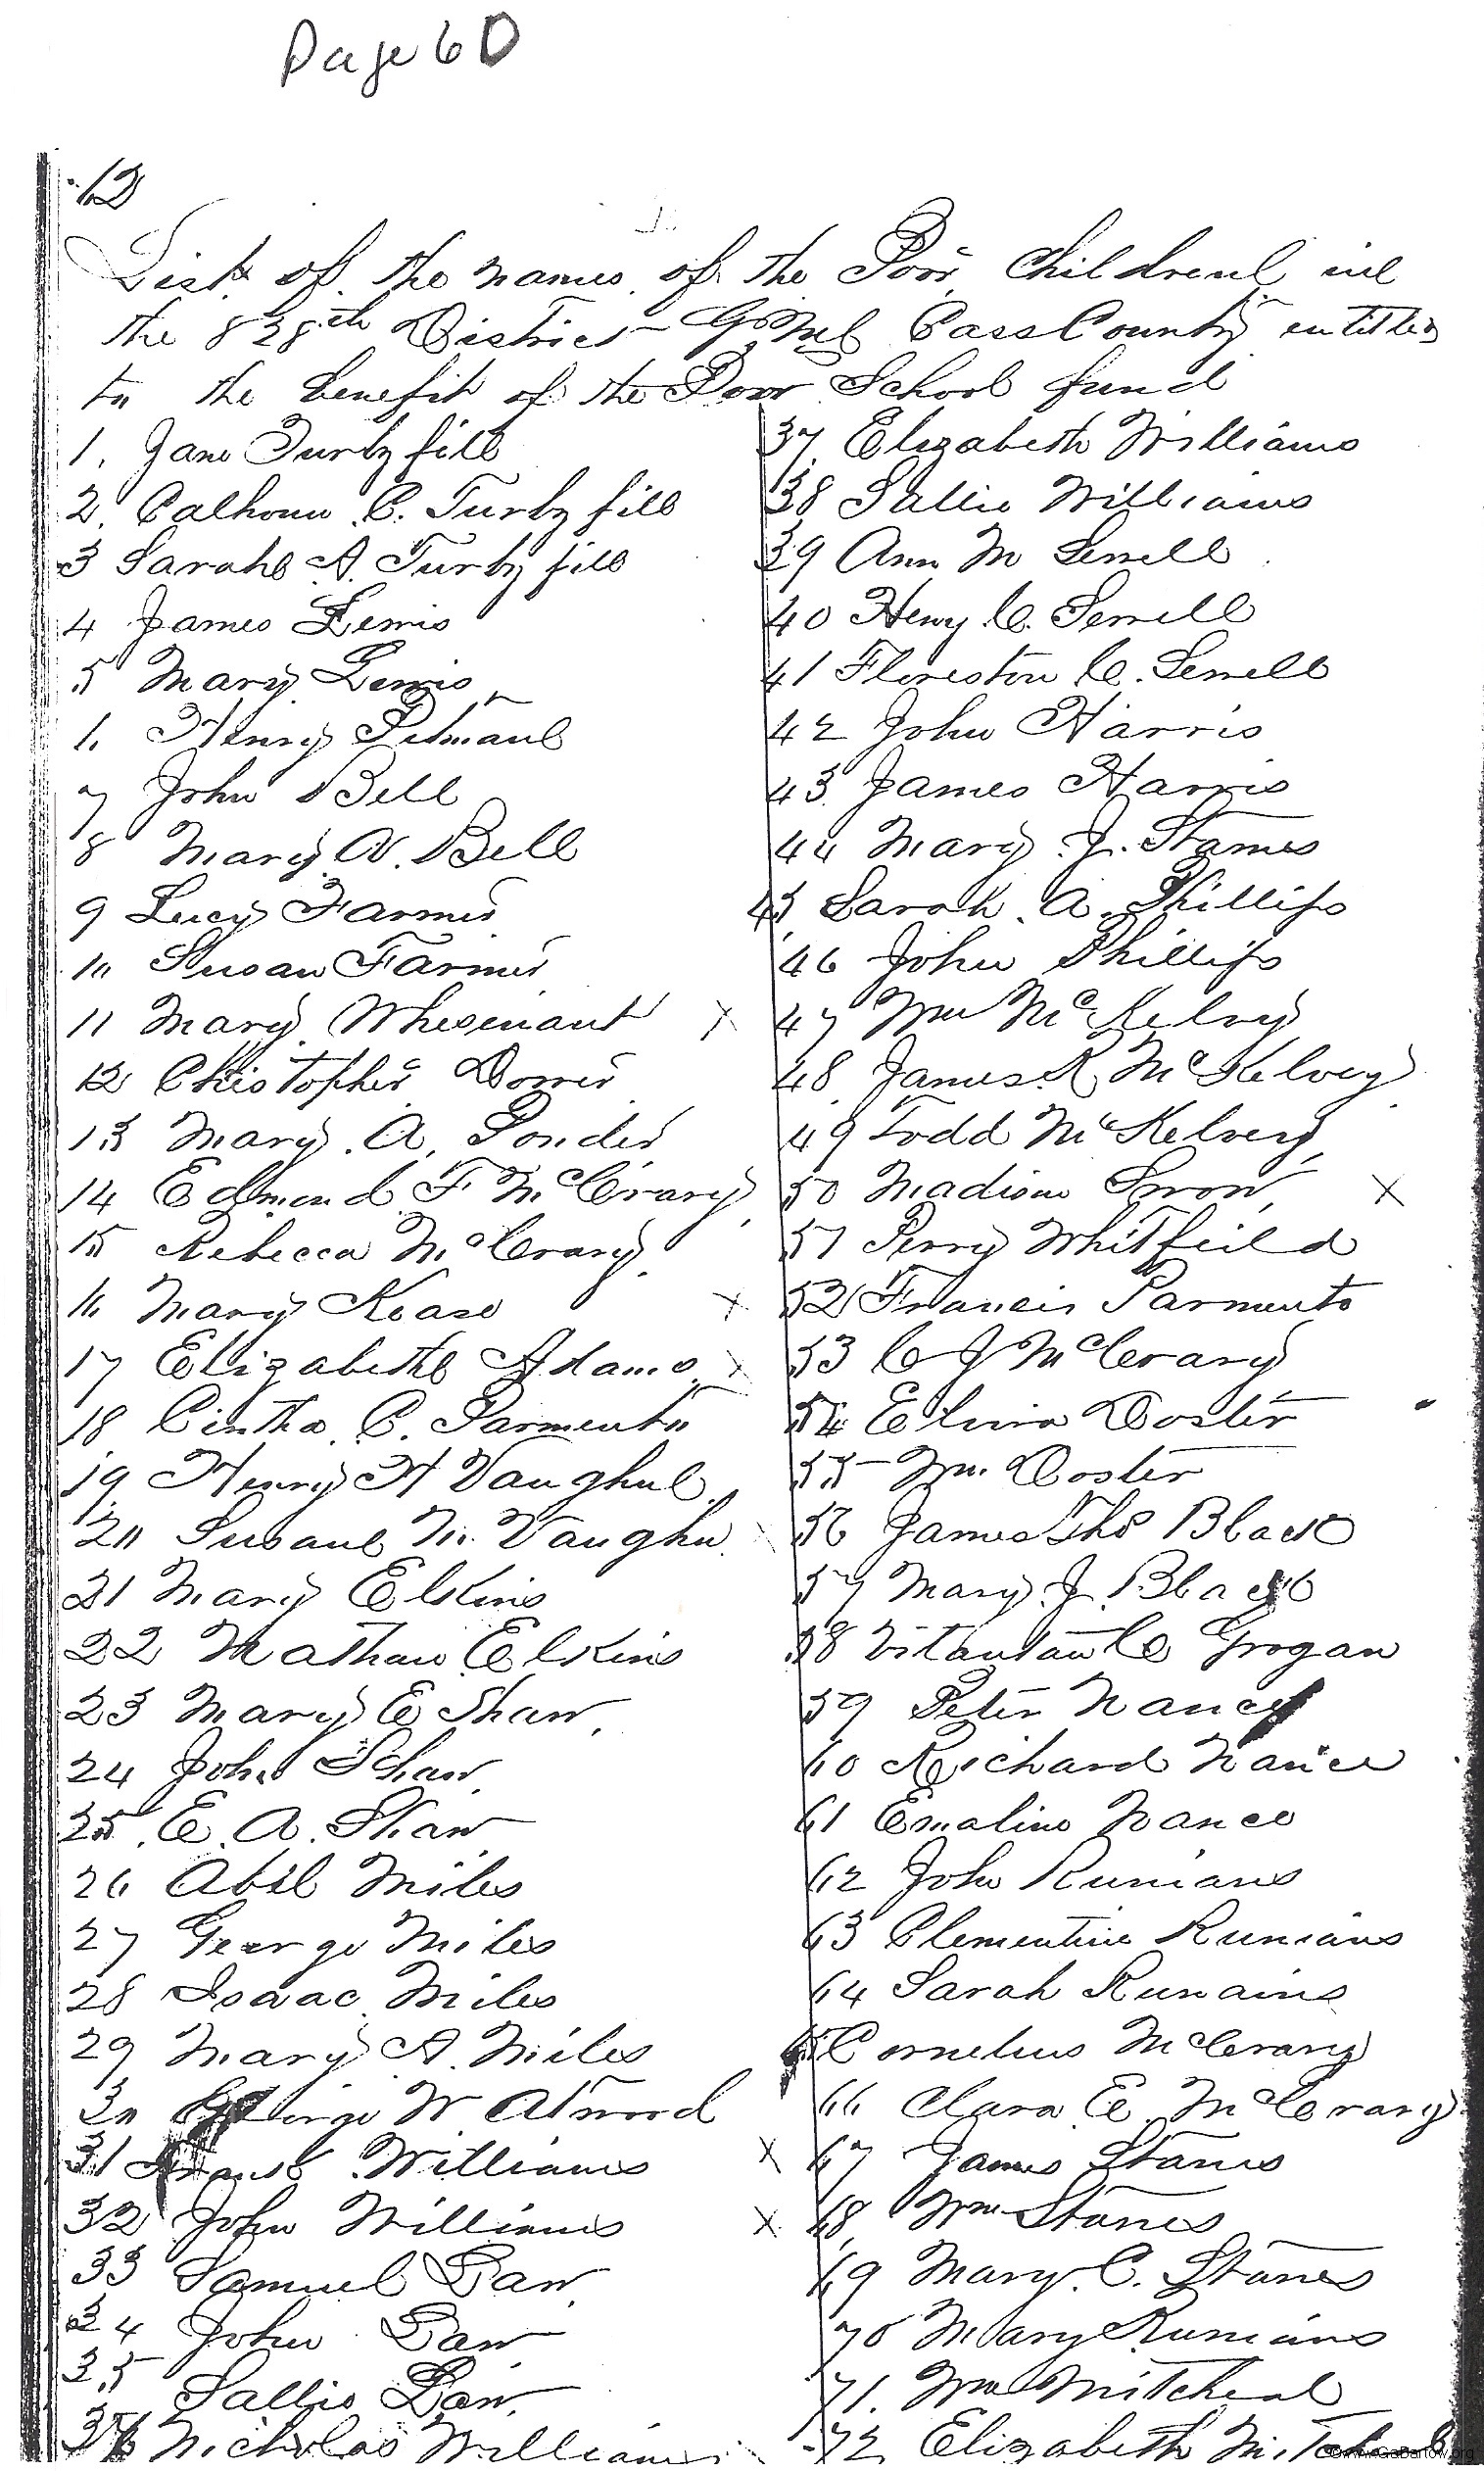 Page 60
12
List of the names of the Poor Children in
the 828th District G M Cass County entitled
to the benefit of the Poor School fund
1. Jane Turbyfill
2. Calhoun C. Turbyfill
3 Sarah A. Turbyfill
4 James Lewis
5 Mary Lewis
6 Henry Pitman
7 John Bell
8 Mary A. Bell
9 Lucy Farmer
10 Susan Farmer
11 Mary Whisenant
12 Christopher Dorrer
13 Mary A. Ponder
14 Edmond F McCrary
15 Rebecca McCrary
16 Mary Kease
17 Elizabeth Adams
18 Cintha C. Parmenter
19 Henry H Vaughn
20 Susan M. Vaughn
21 Mary Elkins
22 Nathan Elkins
23 Mary E Shaw
24 John Shaw
25. E. A. Shaw
26 Abel Miles
27 George Miles
28 Isaac Miles
29 Mary A. Miles
30 George W Atwood
31 Williams
32 John Williams
33 Samuel Law
34 John Law
35 Sallie Law
36 Nicholas Williams
37 Elizabeth Williams
38 Sallie Williams
39 Ann M Sewell
40 Henry C. Sewell
41 Floreston C. Sewell
42 John Harris
43 James Harris
44 Mary J. Starnes
45 Sarah A. Phillips
46 John Phillips
X 47 Wm McKelvy
48 James R McKelvey
49 Todd McKelvey
50 Madison Snow X
51 Perry Whitfeild
X 52 Francis Parmenter
X 53 C J McCrary
54 Elvira Doster
55 Wm. Doster
56 James Thos Black
57 Mary J. Black
58 C Grogan
59 Peter Nance
60 Richard Nance
61 Emaline Nance
62 John Runians
63 Clementine Runians
64 Sarah Runains
65 Cornelius McCrary
66 Clara E McCrary
X 67 James Starnes
X 68 Wm Starnes
69 Mary C. Starnes
70 Mary Runians
71. Wm Mitcheal
72 Elizabeth Mitcheal
©www.GaBartow.org